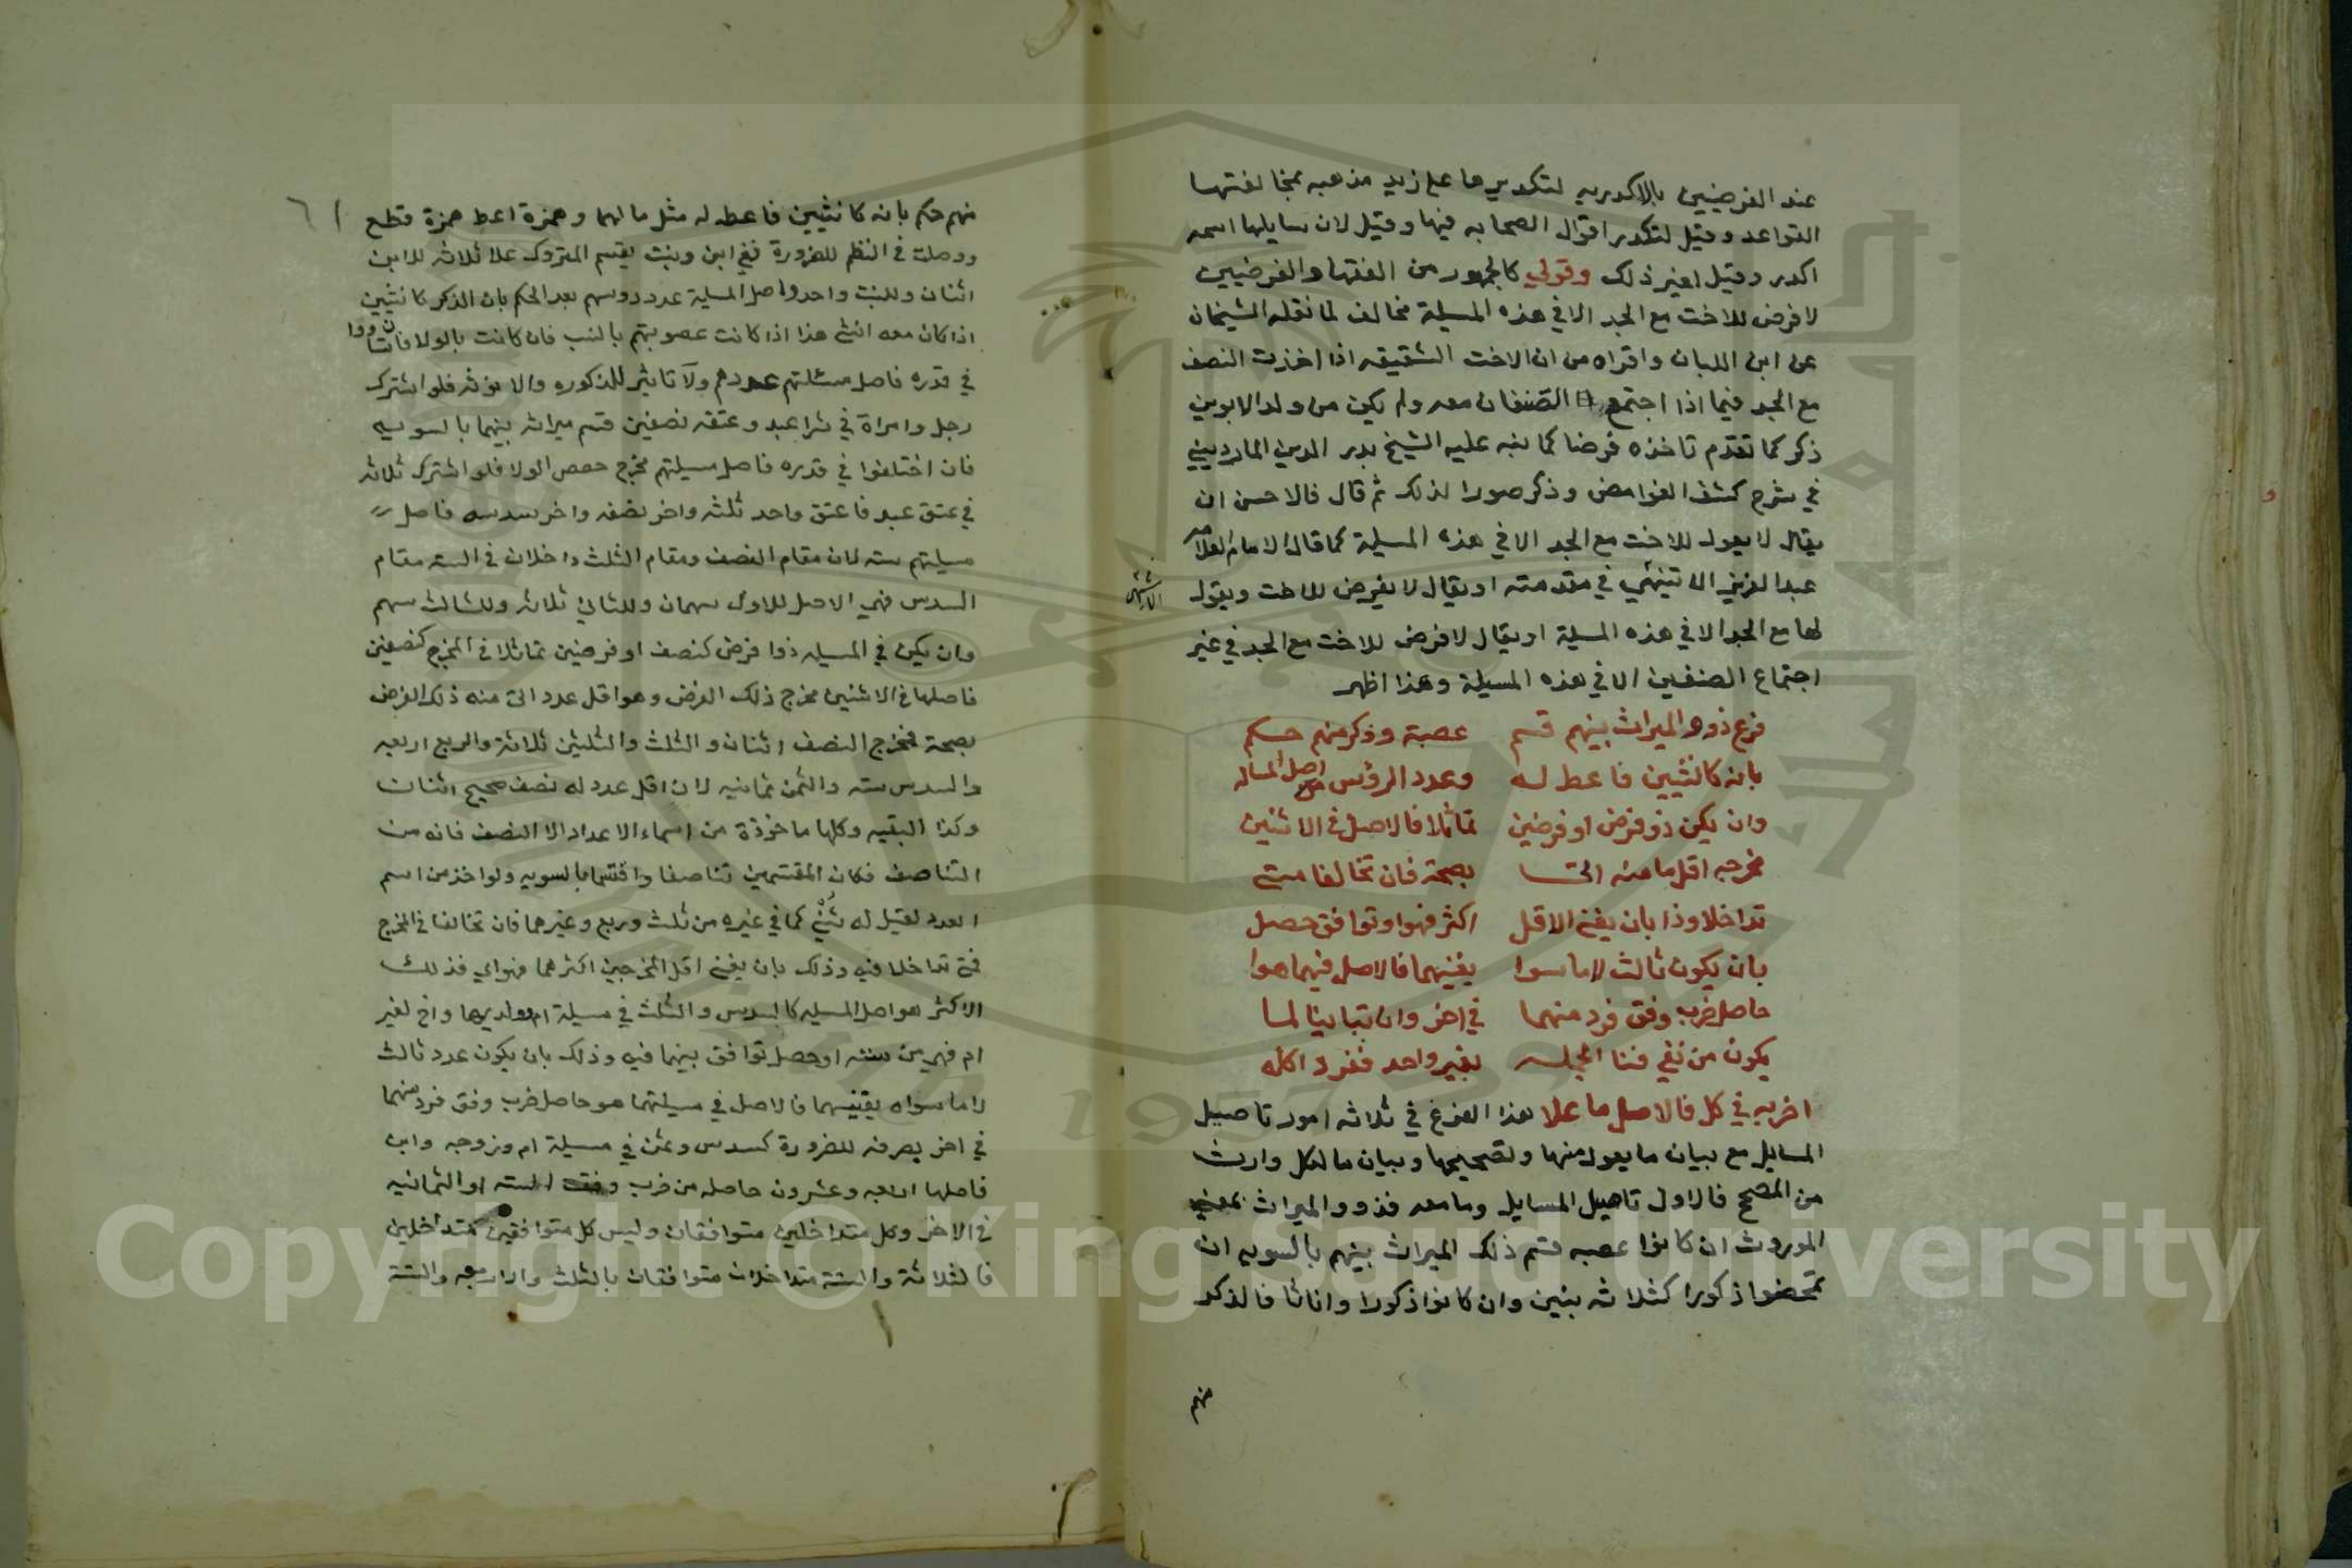 عند الفرضيين بالاكدريه لتكديرها على زيد مذهبه بمخالفتها
القواعد وقيل لتكدر اقوال الصحابه فيها وقيل لان سايلها اسمه
اكدر وقيل لغير ذلك وقولي كالجمهور من الفقها والفرضيين
لا فرض للاخت مع الجد الا في هذه المسيلة مخالف لما نقله الشيخان
عن ابن اللبان واقراه من ان الاخت الشقيقه اذا اخذت النصف
مع الجد فيما اذا اجتمع الصنفان معه ولم يكن من ولد الابوين
ذكر كما تقدم تاخذه فرضا كما نبه عليه الشيخ بدر الدين المارديني
في شرح كشف الغوامض وذكر صورا لذلك ثم قال فالاحسن ان
يقال لا يعول للاخت مع الجد الا في هذه المسيلة كما قال الامام العلامه
عبد العزيز الاشنهي في مقدمته او يقال لا يفرض للاخت ويعول
لها مع الجد الا في هذه المسيلة او يقال لا فرض للاخت مع الجد في غير
اجتماع الصنفين الا في هذه المسيلة وهذا اظهر
فرع ذوو الميراث بينهم قسم عصبة وذكر منهم حكم
بانه كانثيين فاعط له وعدد الرؤس اصل المساله
وان يكن ذو فرض او فرضين تماثلا فالاصل في الاثنين
مخرجه اقل ما منه اتى بصحة فان تخالفا متى
تداخلا وذا بان يفنى الاقل اكثر فهو او توافق حصل
بان يكون ثالث لا ما سوا يفنيهما فالاصل فيهما هوا
حاصل ضرب وفق فرد منهما في اخر وان تباينا لما
يكون من نفي فنا الجمله بغير واحد ففرد اكله
اضربه في كل فالاصل ما علا هذا الفرع في ثلاثه امور تاصيل
المسايل مع بيان ما يعول منها وتصحيحها وبيان ما لكل وارث
من المصحح فالاول تاصيل المسايل وما معه فذوو الميراث بمعنى
الموروث ان كانوا عصبه قسم ذلك الميراث بينهم بالسويه ان
تمحضوا ذكورا كثلاثه بنين وان كانوا ذكورا واناثا فالذكر
منهم
٦١
منهم حكم بانه كانثيين فاعط له مثل ما لهما وهمزة اعط همزة قطع
ووصلت في النظم للضرورة ففي ابن وبنت يقسم المتروك على ثلاثه للابن
اثنان وللبنت واحد واصل المسيلة عدد روسهم بعد الحكم بان الذكر كانثيين
اذا كان معه انثى هذا اذا كانت عصوبتهم بالنسب فان كانت بالولا فان تساووا
في قدره فاصل مسئلتهم عددهم ولا تاثير للذكوره والانوثه فلو اشترك
رجل وامراة في شرا عبد وعتقه نصفين قسم ميراثه بينهما بالسويه
فان اختلفوا في قدره فاصل مسيلتهم مخرج حصص الولا فلو اشترك ثلاثه
في عتق عبد فاعتق واحد ثلثه واخر نصفه واخر سدسه فاصل
مسيلتهم سته لان مقام النصف ومقام الثلث داخلان في السته مقام
السدس فهي الاصل للاول سهمان وللثاني ثلاثه وللثالث سهم
وان يكن في المسيله ذوا فرض كنصف او فرضين تماثلا في المخرج كنصفين
فاصلها في الاثنين مخرج ذلك الفرض وهو اقل عدد اتى منه ذلك الفرض
بصحة فمخرج النصف اثنان والثلث والثلثين ثلاثة والربع اربعه
والسدس سته والثمن ثمانيه لان اقل عدد له نصف صحيح اثنان
وكذا البقيه وكلها ماخوذة من اسماء الاعداد الا النصف فانه من
التناصف فكان المقتسمين تناصفا واقتسما بالسويه ولو اخذ من اسم
العدد لقيل له ثُنْي كما في غيره من ثلث وربع وغيرهما فان تخالفا في المخرج
فمتى تداخلا فيه وذلك بان يفنى اقل المخرجين اكثرهما فهو اي فذلك
الاكثر هو اصل المسيله كالسدس والثلث في مسيلة ام وولديها واخ لغير
ام فهي من سته او حصل توافق بينهما فيه وذلك بان يكون عدد ثالث
لا ما سواه يفنيهما فالاصل في مسيلتهما هو حاصل ضرب وفق فرد منهما
في اخر بصرفه للضرورة كسدس وثمن في مسيلة ام وزوجه وابن
فاصلها اربعه وعشرون حاصله من ضرب وفق السته او الثمانيه
في الاخر وكل متداخلين متوافقان وليس كل متوافقين متداخلين
فالثلاثة والستة متداخلان متوافقان بالثلث والاربعه والستة
Copyright © King Saud University
1957